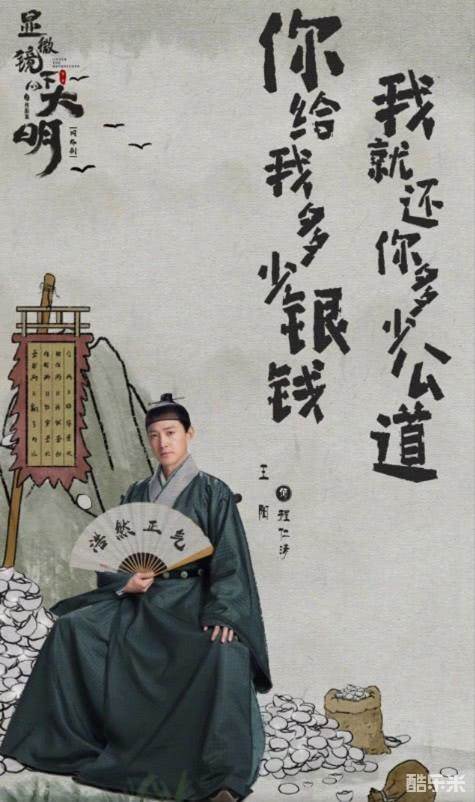 显微镜下的大明
你给我多少银钱
我就还你多少公道
王阳
饰
程仁清
浩然正气
酷乐米